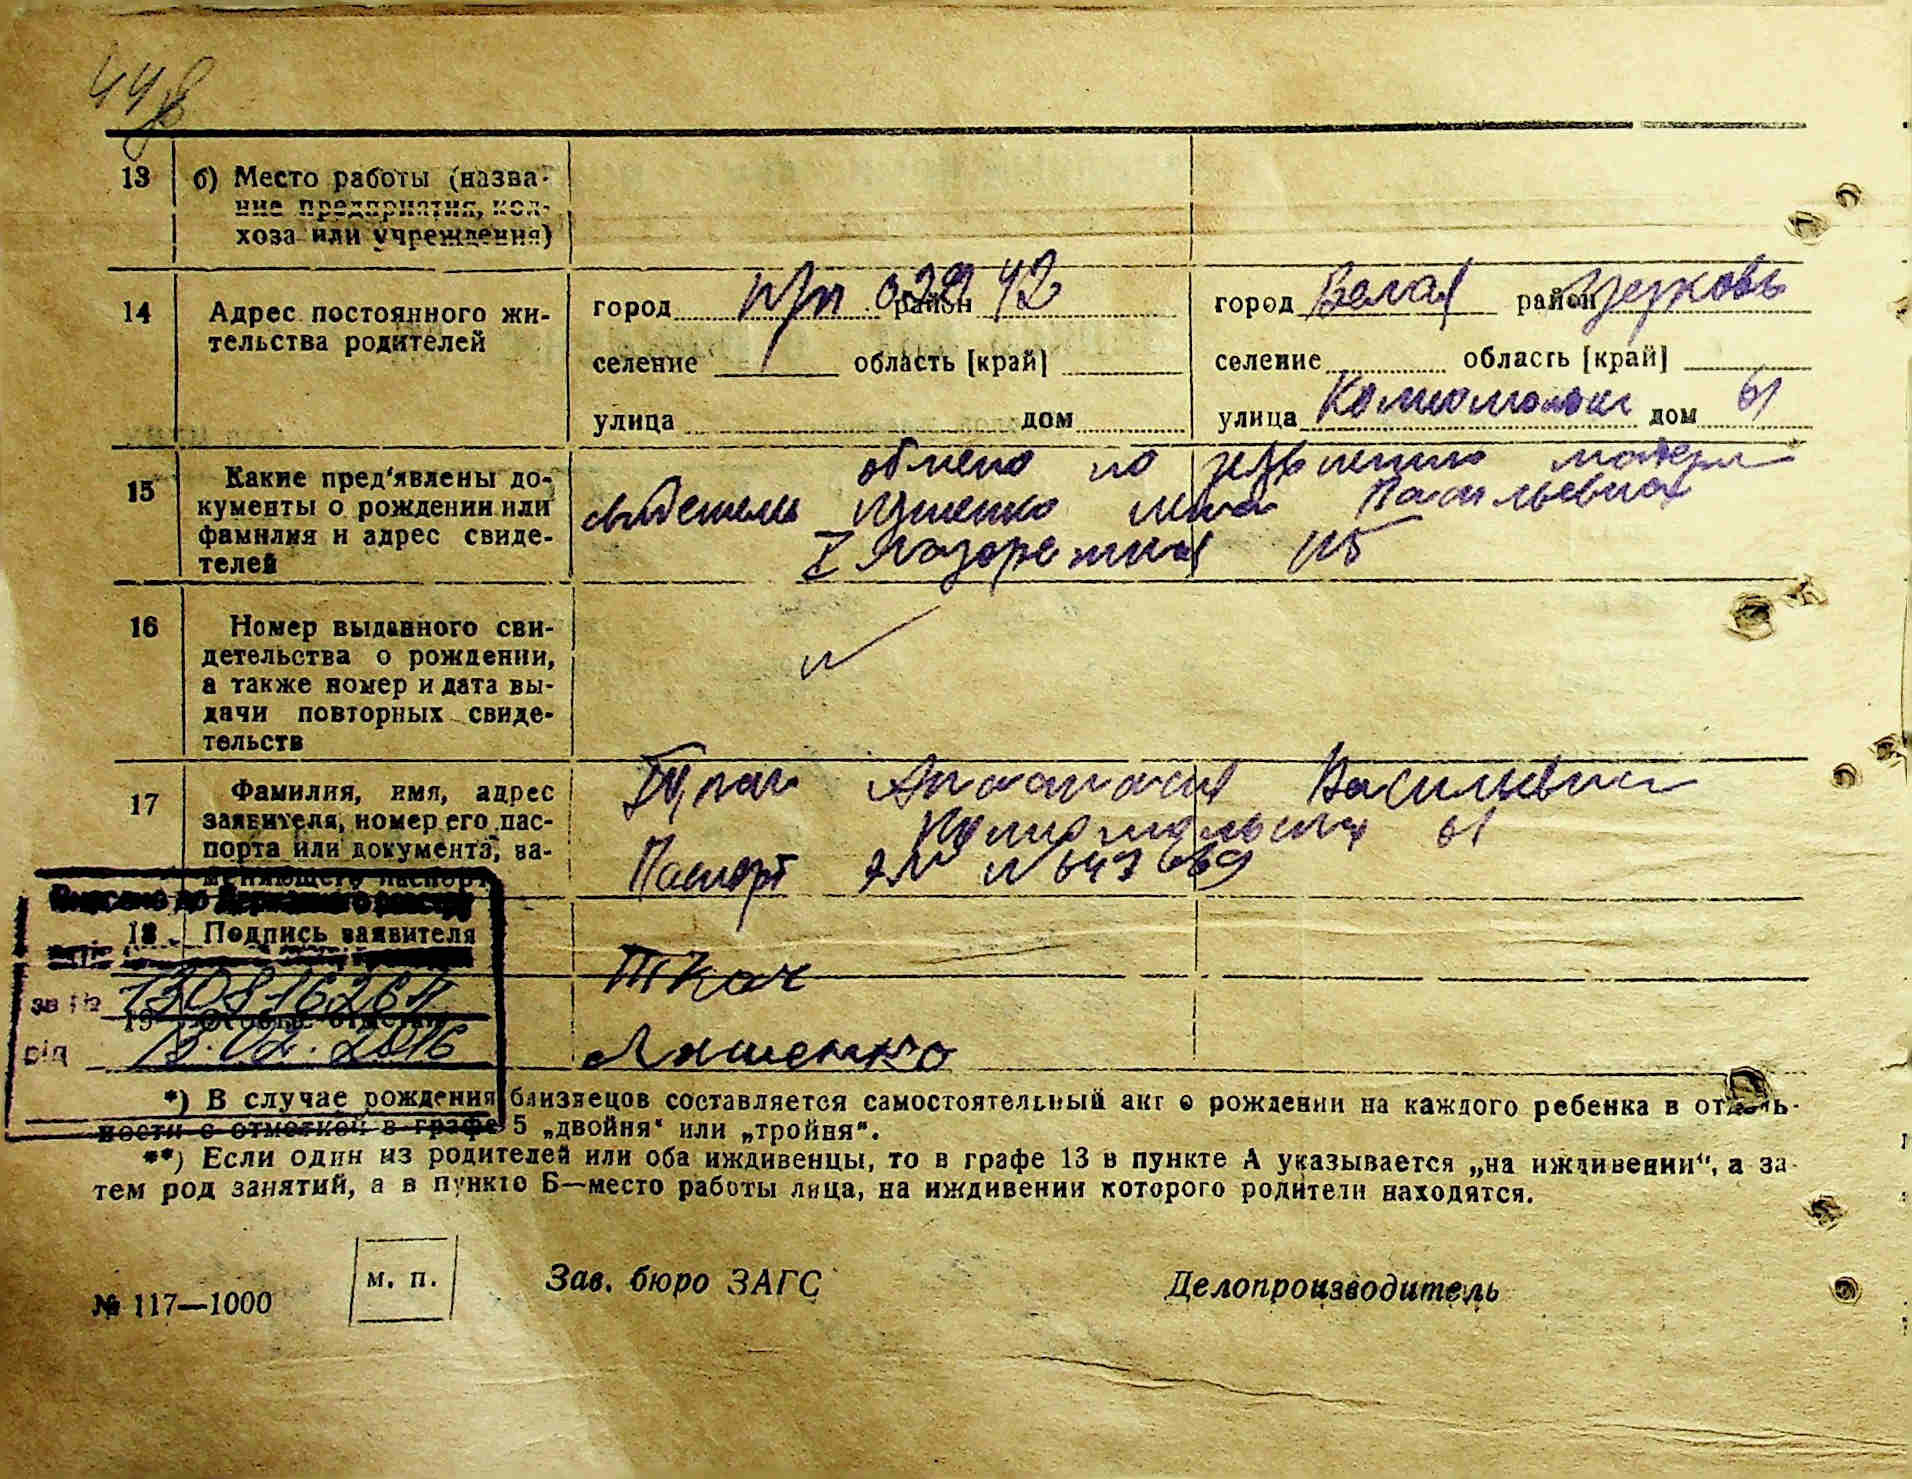 13 б) Место работы (назва-
ние предприятия, кол-
хоза или учреждения)
14 Адрес постоянного жи-
тельства родителей
город п/п 02942 район
селение область [край]
улица дом
город Белая район Церковь
селение область [край]
улица Комсомольск дом 61
15 Какие пред'явлены до-
кументы о рождении или
фамилия и адрес свиде-
телей
по матери
Васильевна
125
16 Номер выданного сви-
детельства о рождении,
а также номер и дата вы-
дачи повторных свиде-
тельств
17 Фамилия, имя, адрес
заявителя, номер его пас-
порта или документа, за-
меняющего паспорт
Анастасия Васильевна
Комсомольская 61
Паспорт № 647669
Внесено до Державного реєстру
18 Подпись заявителя
Ткач
за №
19 Особые отметки
від 13.02.2016
Ляшенко
*) В случае рождения близнецов составляется самостоятельный акт о рождении на каждого ребенка в отдель-
ности с отметкой в графе 5 „двойня“ или „тройня“.
**) Если один из родителей или оба иждивенцы, то в графе 13 в пункте А указывается „на иждивении“, а за-
тем род занятий, а в пункте Б—место работы лица, на иждивении которого родители находятся.
№ 117—1000
м. п.
Зав. бюро ЗАГС
Делопроизводитель